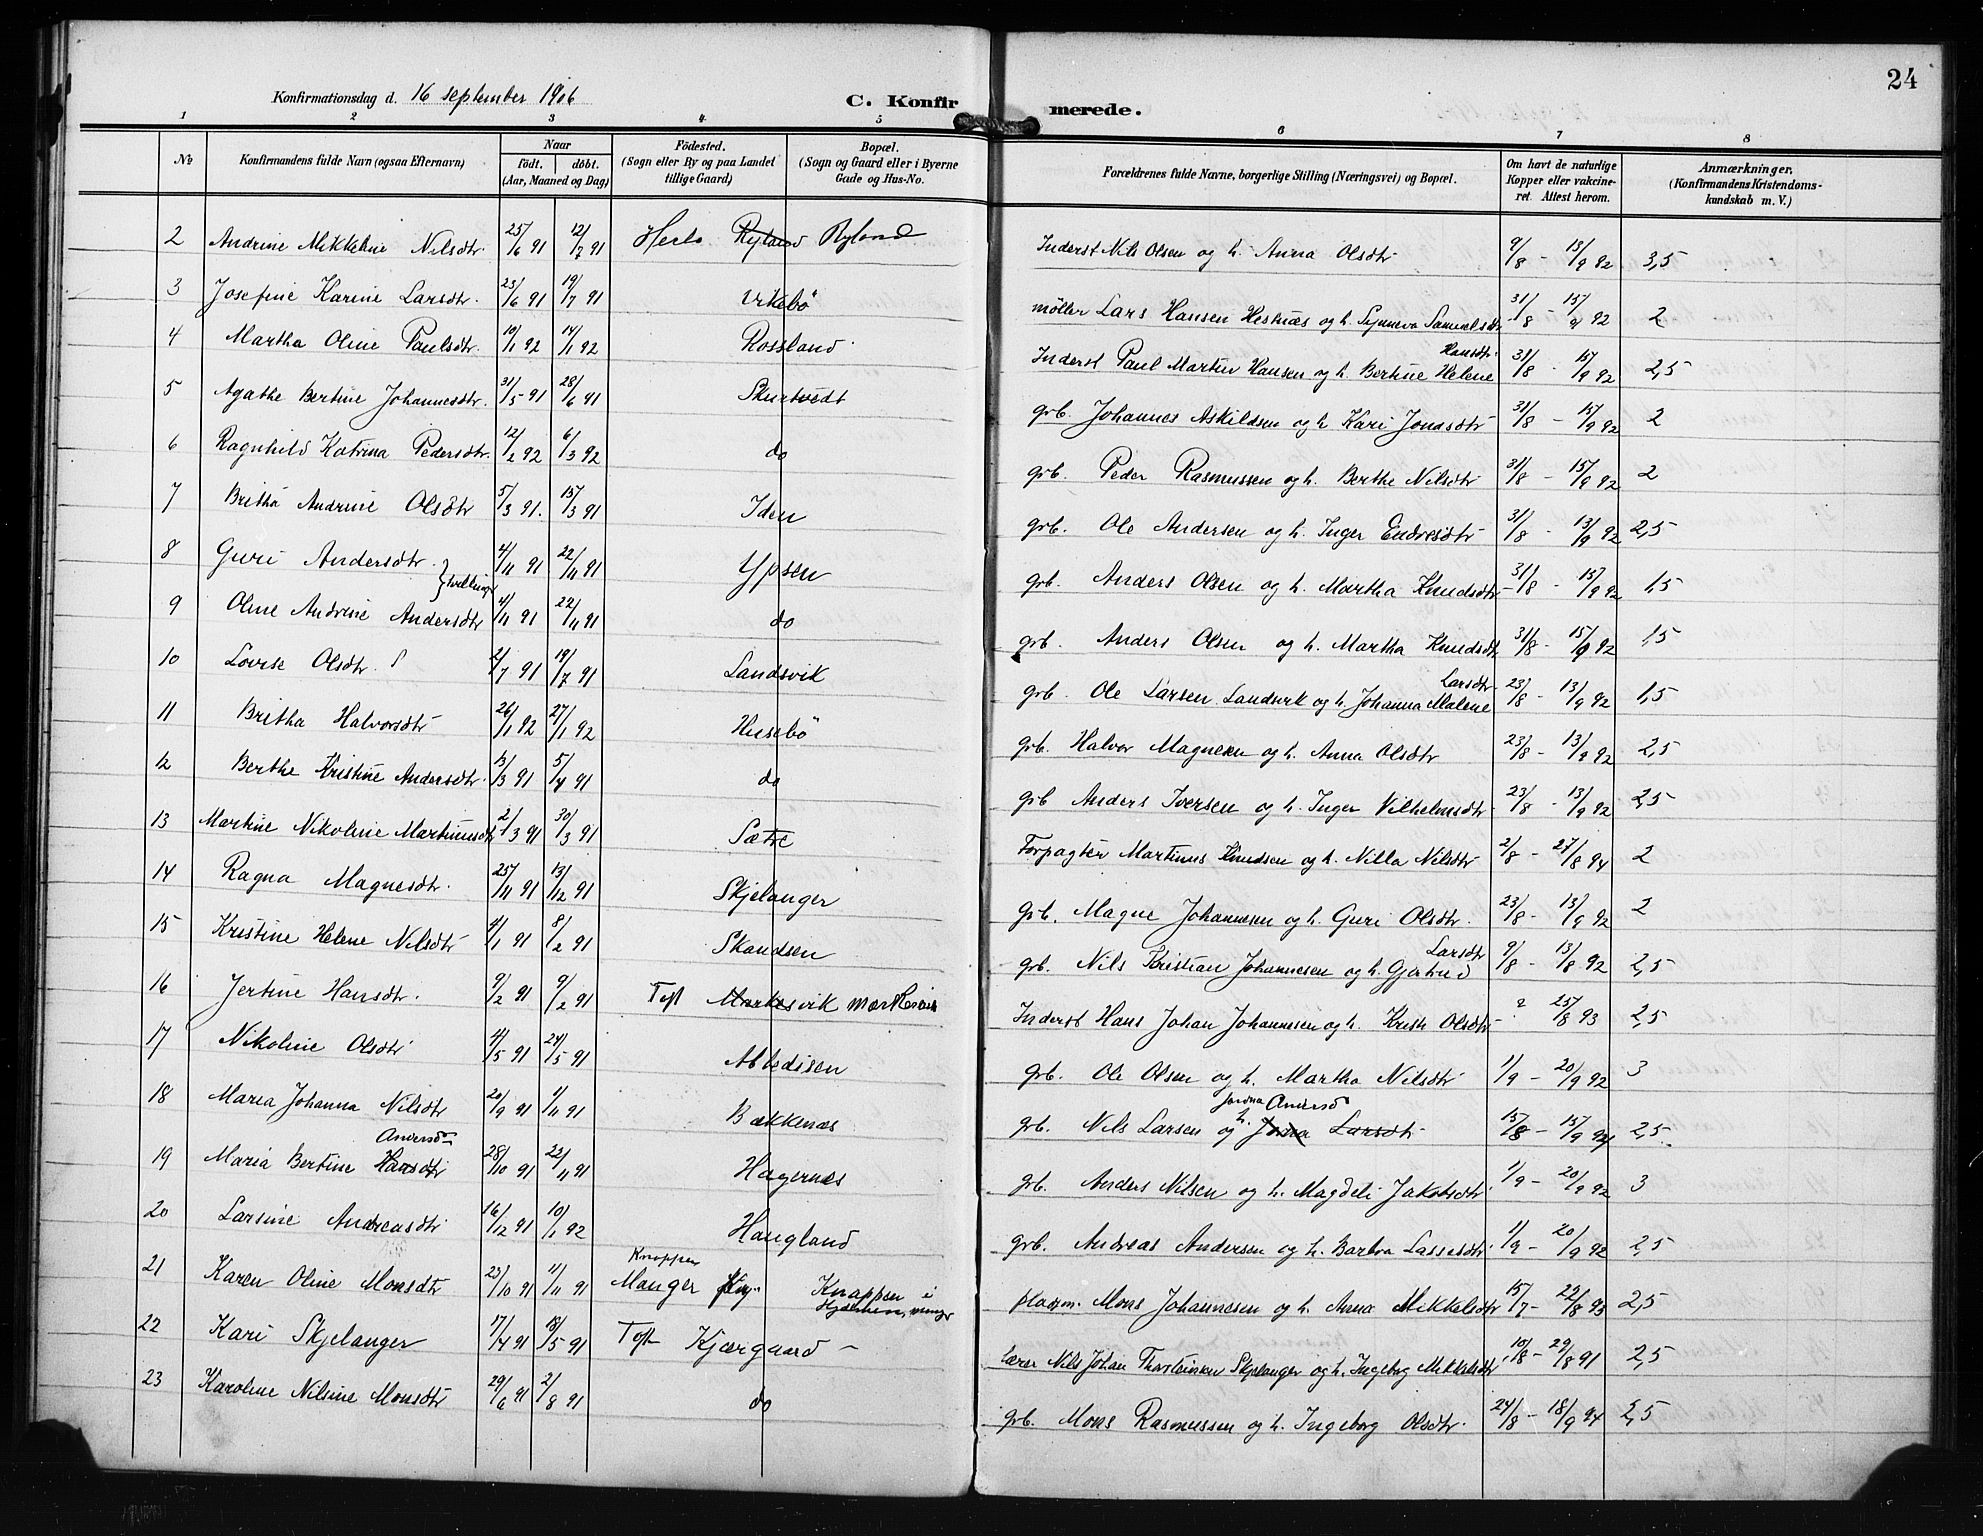 24
Konfirmationsdag d. 16 september 1906
C. Konfirmerede.
1 2 3 4 5 6 7 8
No
Konfirmandens fulde Navn (ogsaa Efternavn)
Naar
födt. döbt.
(Aar, Maaned og Dag)
Födested.
(Sogn eller By og paa Landet
tillige Gaard)
Bopæl.
(Sogn og Gaard eller i Byerne
Gade og Hus-No.
Forældrenes fulde Navne, borgerlige Stilling (Næringsvei) og Bopæl.
Om havt de naturlige
Kopper eller vakcine-
ret. Attest herom.
Anmærkninger.
(Konfirmandens Kristendoms-
kundskab m. V.)
2 Andrine Mikkeline Nilsdtr. 25/6 91 12/7 91 Herlö Ryland Ryland Inderst Nils Olsen og h. Anna Olsdtr 9/8 - 13/9 92 3,5
3 Josefine Karine Larsdtr. 23/6 91 19/7 91 Virkebö møller Lars Hansen Hesknes og h. Synneva Samuelsdtr 31/8 - 15/9 92 2
4 Martha Oline Paulsdtr. 10/1 92 14/1 92 Rossland Inderst Paul Martin Hansen og h. Bertine Helene Hansdtr. 31/8 - 15/9 92 2,5
5 Agathe Bertine Johannesdtr. 31/5 91 28/6 91 Skurtvedt grb. Johannes Askildsen og h Kari Jonasdtr 31/8 - 15/9 92 2
6 Ragnhild Katrina Pedersdtr. 12/2 92 6/3 92 do grb. Peder Rasmussen og h. Berthe Nilsdtr 31/8 - 15/9 92 2
7 Britha Andrine Olsdtr 5/3 91. 15/3 91 Iden grb. Ole Andersen og h. Inger Endresdtr 31/8 - 13/9 92 2,5
8 Guri Andersdtr. } tvillinger 4/11 91 22/11 91 Ypsen grb. Anders Olsen og h. Martha Knudsdtr 31/8 - 15/9 92 1,5
9 Oline Andrine Andersdtr 4/11 91 22/11 91 do grb. Anders Olsen og h. Martha Knudsdtr 31/8 - 15/9 92 1,5
10 Lovise Olsdtr. 2/7 91 19/7 91 Landsvik grb. Ole Larsen Landsvik og h. Johanna Malene Larsdtr 23/8 - 13/9 92 1,5
11 Britha Halvorsdtr 26/1 92 27/1 92 Husebö grb. Halvor Magnesen og h. Anna Olsdtr 23/8 - 13/9 92 2,5
12 Berthe Kristine Andersdtr. /3 91 5/4 91 do grb Anders Iversen og h. Inger Vilhelmsdtr 23/8 - 13/9 92 2,5
13 Martine Nikoline Martinusdtr 2/3 91 30/3 91 Sætre Forpagter Martinus Knudsen og h. Nilla Nilsdtr 2/8 - 27/8 94 2
14 Ragna Magnesdtr. 25/11 91 13/12 91 Skjelanger grb. Magne Johannesen og h. Guri Olsdtr. 23/8 - 13/9 92 2
15 Kristine Helene Nilsdtr 4/1 91 8/2 91 Skandsen grb. Nils Kristian Johannesen og h. Gjertrud Larsdtr 9/8 - 13/8 92 2,5
16 Jertine Hansdtr. 9/2 91 9/2 91 Toft Markesvik Markesvik Inderst Hans Johan Johannesen og h. Kristi Olsdtr ? 25/8 93 2,5
17 Nikoline Olsdtr 4/5 91 24/5 91 Abbedisen grb. Ole Olsen og h. Martha Nilsdtr 1/9 - 20/9 92 3
18 Maria Johanna Nilsdtr 20/9 91 1/11 91 Bækkenæs grb. Nils Larsen og h. Jonna Larsdtr Jordna Andersd 15/8 - 15/9 94 2,5
19 Maria Bertine Hansdtr Andersd 28/10 91 22/11 91 Hagernæs grb. Anders Nilsen og h. Magdeli Jakobsdtr. 1/9 - 20/9 92 3
20 Larsine Andreasdtr 16/12 91 10/1 92 Haugland grb. Andreas Andersen og h. Barbra Lassesdtr. 1/9 - 20/9 92 2,5
21 Karen Oline Monsdtr 23/10 91 1/11 91 Knappen Manger Knappen i Hjelmen, manger plasm. Mons Johannesen og h. Anna Mikkelsdtr 15/7 - 22/8 93 2,5
22 Kari Skjelanger 17/4 91 18/5 91 Toft Kjærgaard — Lærer Nils Johan Thorsteinsen Skjelanger og h. Ingeborg Mikkelsdtr. 10/8 - 29/8 91 2,5
23 Karoline Nilsine Monsdtr 29/6 91 2/8 91 do grb. Mons Rasmussen og h. Ingeborg Olsdtr. 24/8 - 18/9 94 2,5